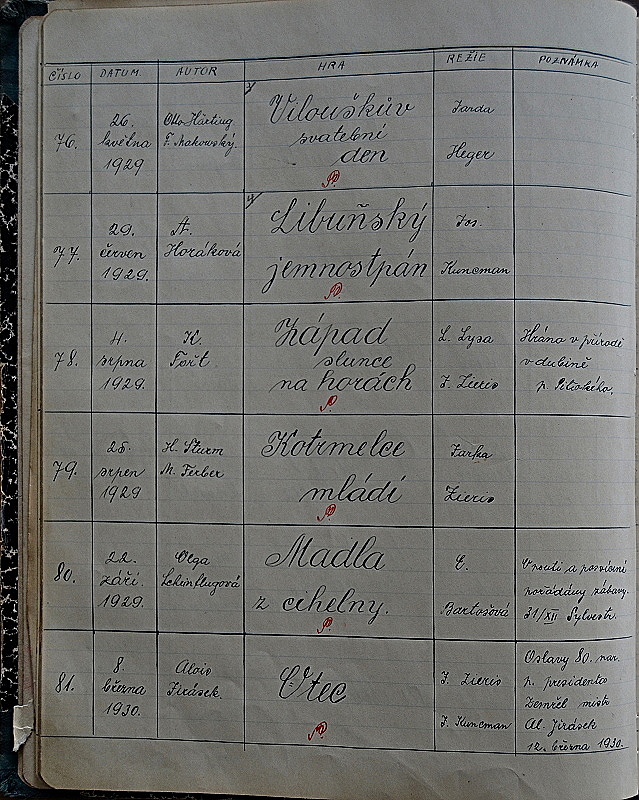 ČÍSLO DATUM. AUTOR HRA REŽIE POZNÁMKA
76.
26.
května
1929
Otto Härting
F. Makowský.
Vilouškův
svatební
den
Jarda
Heger
77.
29.
červen
1929.
A.
Horáková
Libuňský
jemnostpán
Jos.
Kuncman
78.
4.
srpna
1929.
K.
Fořt
Západ
slunce
na horách
L. Lysa
J. Zieris
Hráno v přírodě
v dubině
79.
25.
srpen
1929
H. Sturm
M. Ferber
Kotrmelce
mládí
Jarka
Zieris
80.
22.
září.
1929.
Olga
Scheinflugová
Madla
z cihelny.
E.
Bartošová
V pouti a posvícení
pořádány zábavy.
31/XII Sylvestr.
81.
8.
března
1930.
Alois
Jirásek.
Otec
J. Zieris
J. Kuncman
Oslavy 80. nar.
p. presidenta
Zemřel mistr
Al. Jirásek
12. března 1930.